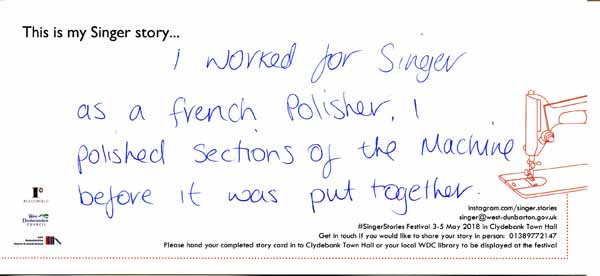 This is my Singer story...
I worked for Singer
as a french Polisher. I
polished sections of the Machine
before it was put together.
instagram.com/singer.stories
singer@west-dunbarton.gov.uk
#SingerStories Festival 3-5 May 2018 in Clydebank Town Hall
Get in touch if you would like to share your story in person: 01389772147
Please hand your completed story card in to Clydebank Town Hall or your local WDC library to be displayed at the festival
West
Dunbartonshire
Council